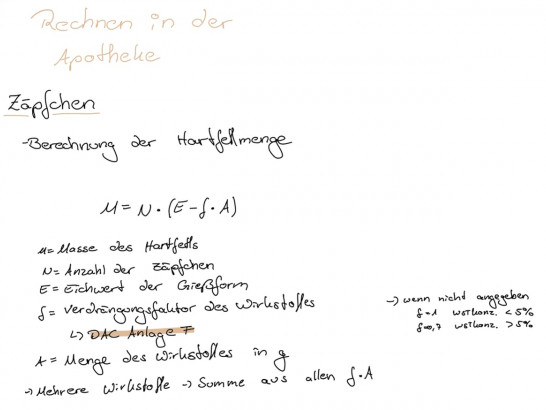 Rechnen in der
Apotheke
Zäpfchen
-Berechnung der Hartfettmenge
M = N · (E - f · A)
M = Masse des Hartfetts
N = Anzahl der Zäpfchen
E = Eichwert der Gießform
f = Verdrängungsfaktor des Wirkstoffes
↳ DAC Anlage F
→ wenn nicht angegeben
f=1 WSTkonz. < 5%
f=0,7 WSTkonz. > 5%
A = Menge des Wirkstoffes in g
→ Mehrere Wirkstoffe → Summe aus allen f · A